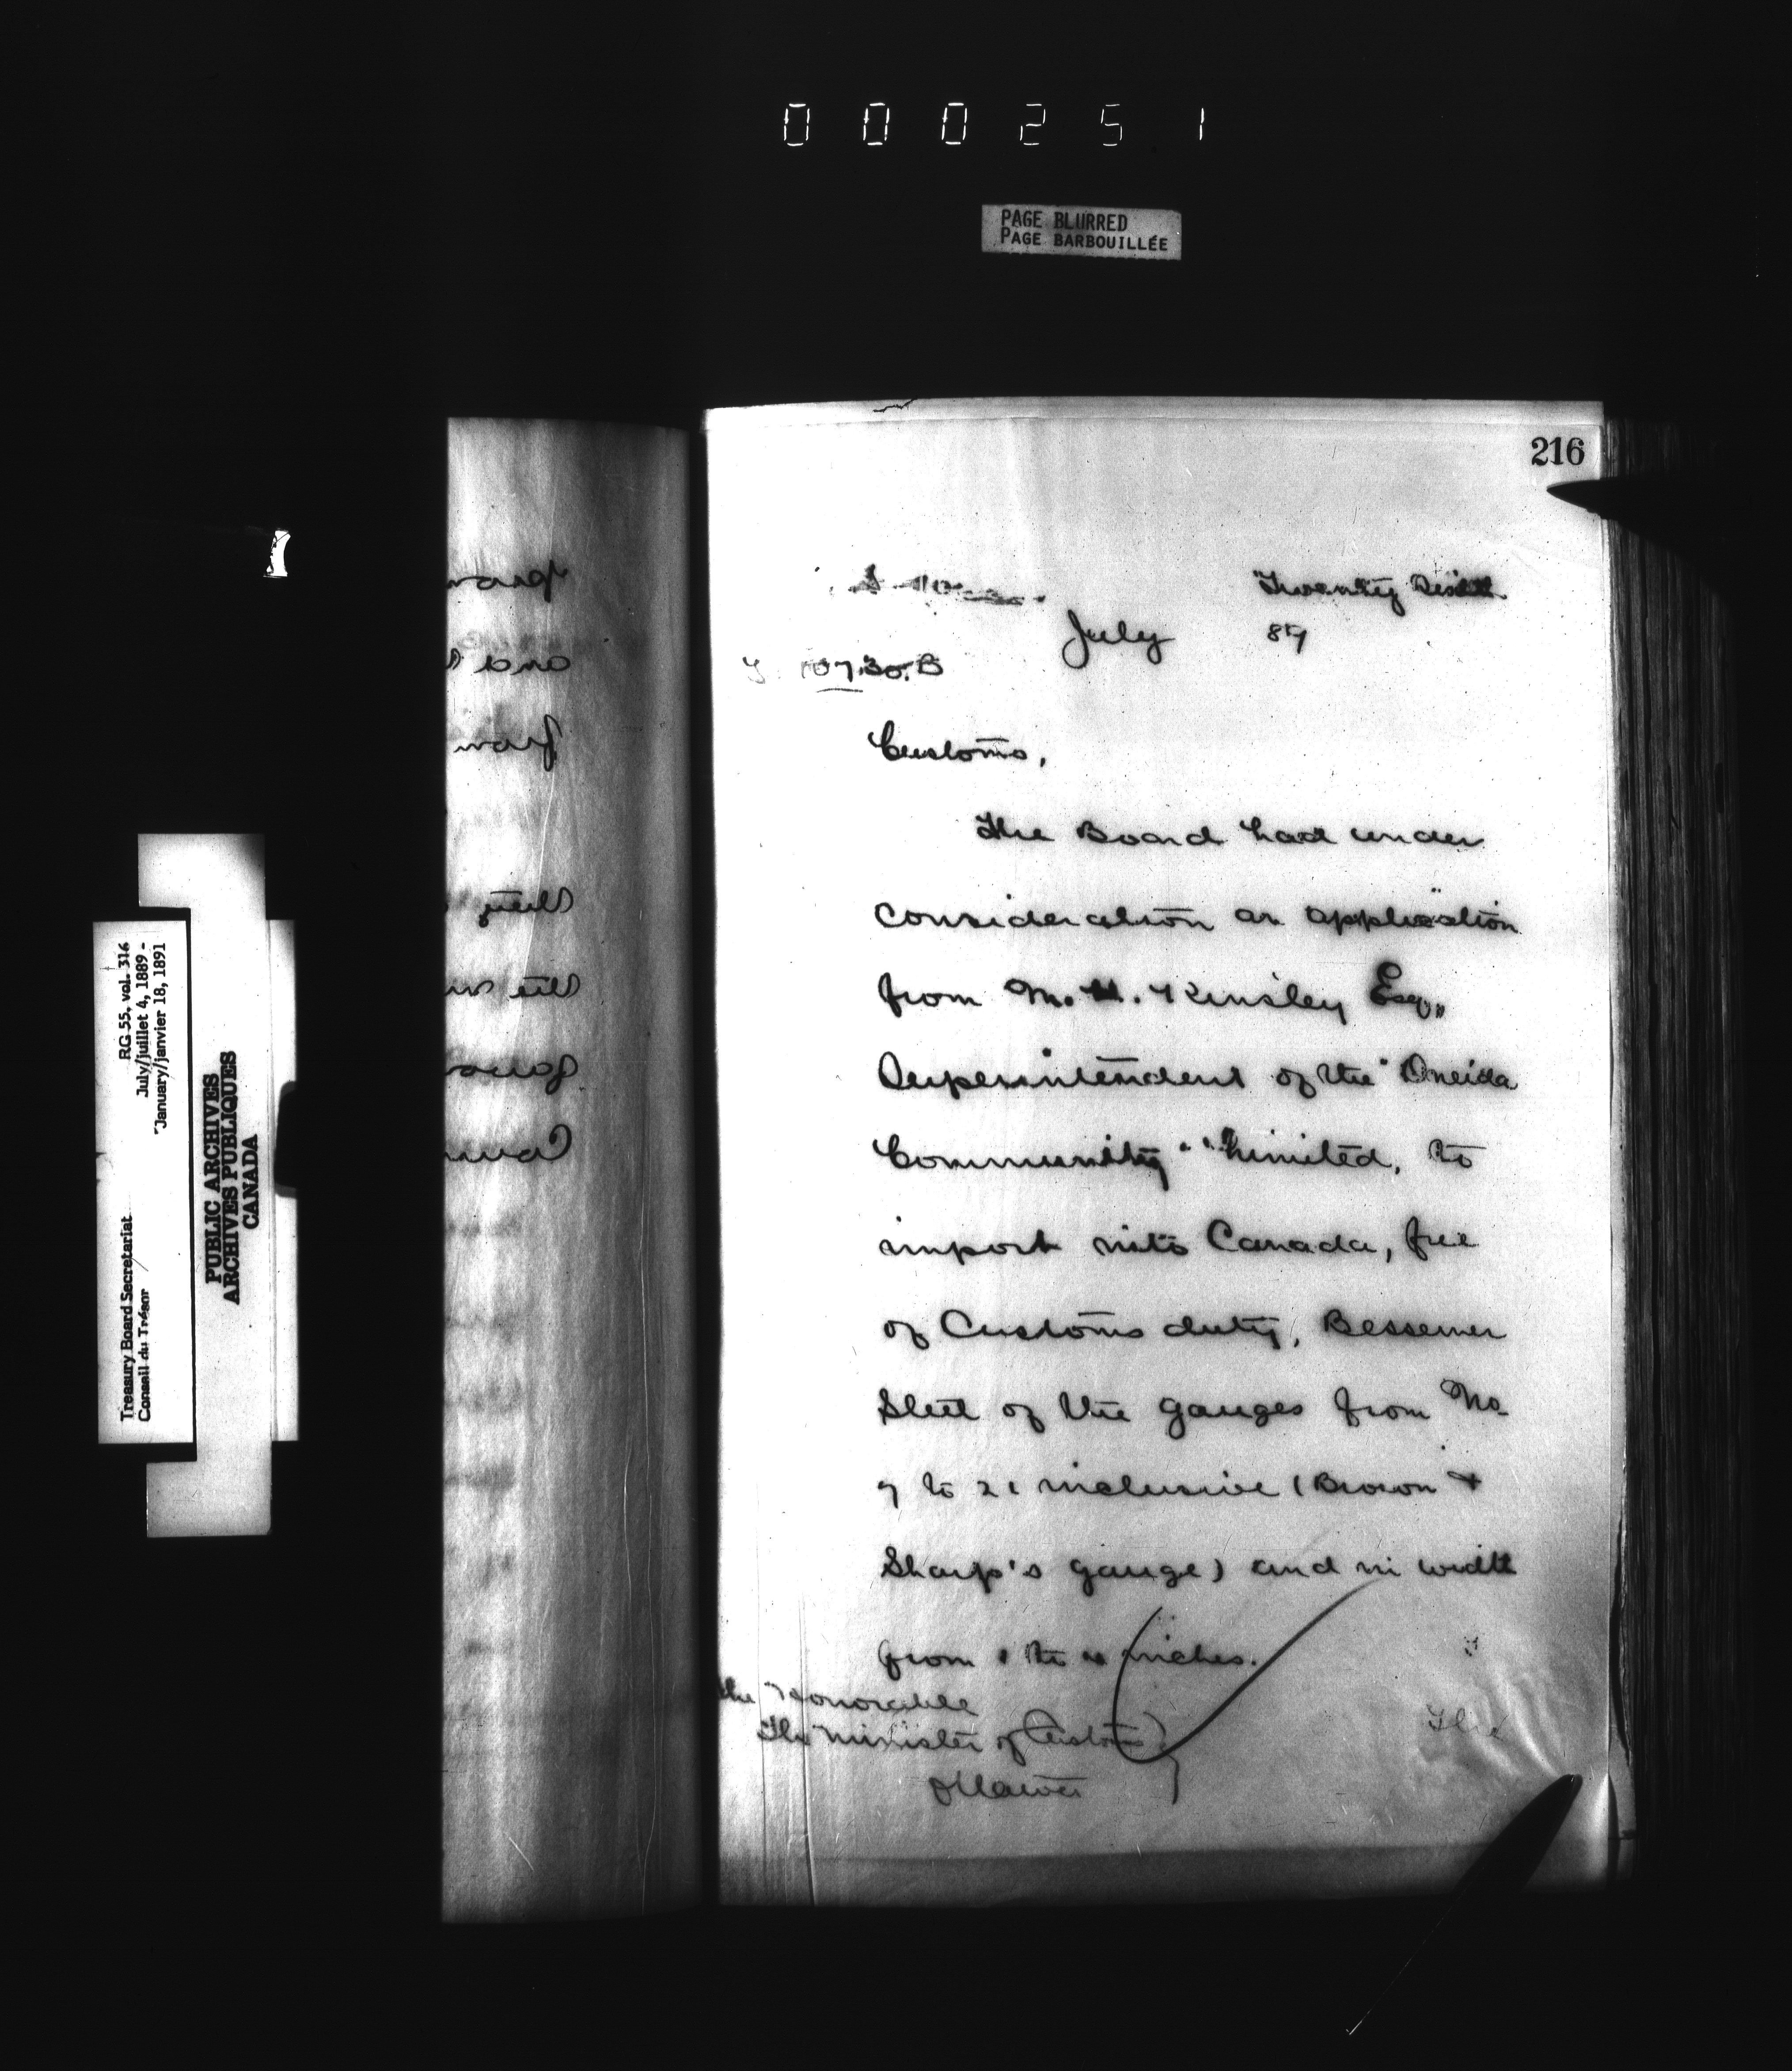 000251
PAGE BLURRED
PAGE BARBOUILLÉE
216
Twenty Sixth
July 89
10730.B
Customs,
The Board had under
consideration an application
from M. H. Kinsley Esq.,
Superintendent of the "Oneida
Community" Limited, to
import into Canada, free
of Customs duty, Bessemer
Steel of the gauges from No.
7 to 21 inclusive (Brown &
Sharp's gauge) and in width
from to inches.
The Honorable
The Minister of Customs
Ottawa
The
Treasury Board Secretariat RG 55, vol. 316
Conseil du Trésor July/juillet 4, 1889 -
January/janvier 18, 1891
PUBLIC ARCHIVES
ARCHIVES PUBLIQUES
CANADA